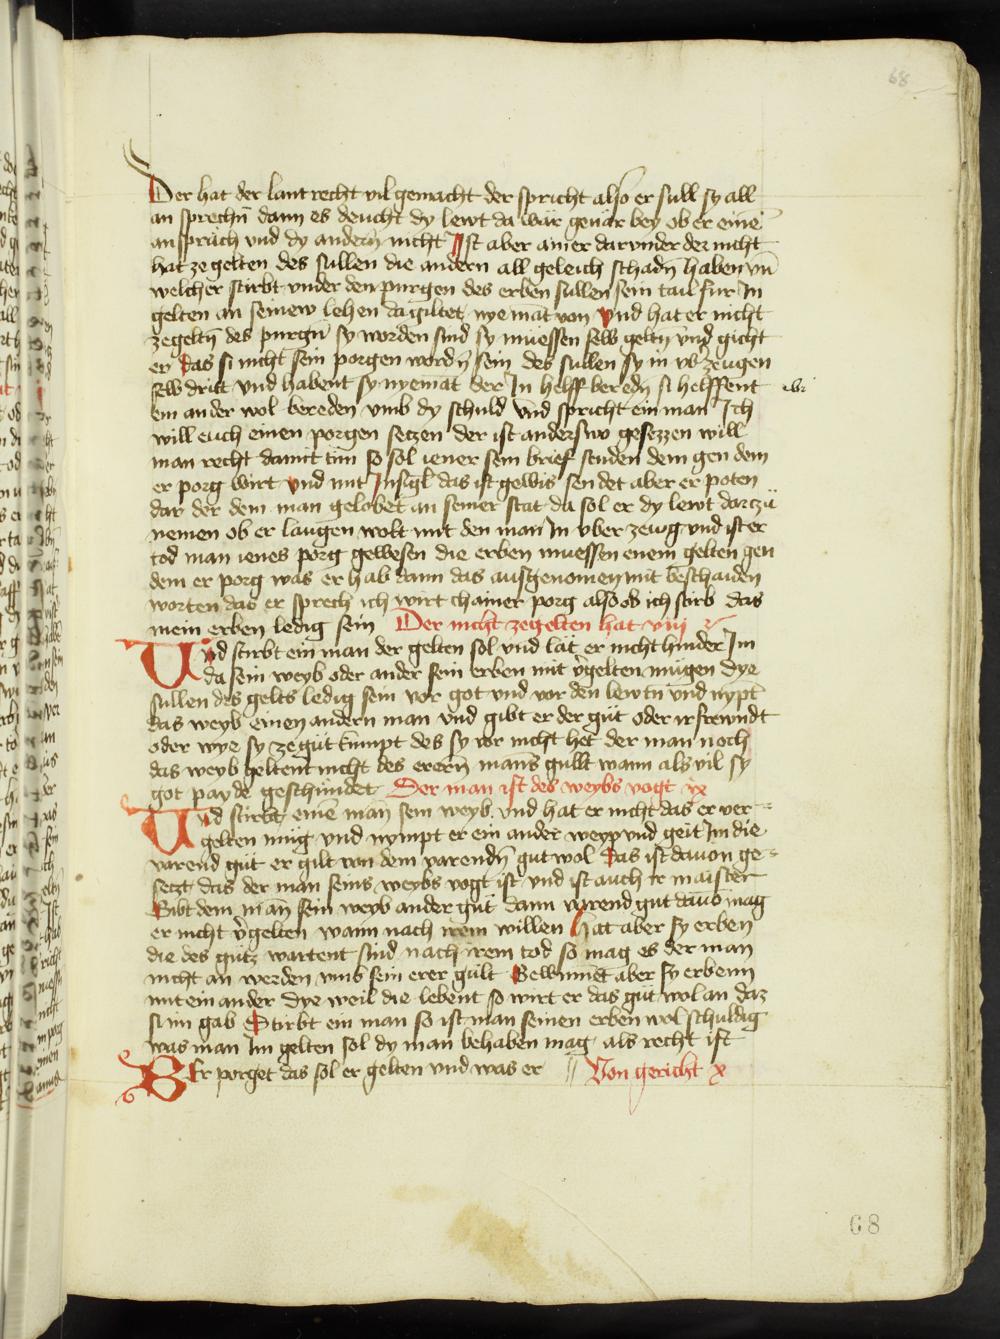 68
Der hat der lantrecht vil gemacht der spricht also er sull sy all
an sprechn̄ dann es deucht dy lewt da wär geuär bey ob er eine
ansprach vnd dy andern̄ nicht Ist aber ainer darvnder der nicht
hat ze gelten des sullen die andern all geleich schadn̄ haben vn̄
welcher stirbt vnder den purgen des erben sullen sein tail fur In
gelten an seinew lehen da giltet nyemāt von vnd hat er nicht
ze geltn̄ des purgn̄ sy worden sind sy muessen selb geltn̄ vnd gicht
er das si nicht sein porgen wordn̄ sein des sullen sy in vber zeugen
selb dritt vnd habent sy nyemāt der In helff beredn̄ si helffent
ein ander wol bereden vmb dy schuld vnd spricht ein man Ich
will euch einen porgen setzen der ist anderswo gesezzen will
man recht damit tun so sol iener sein brief senden dem gen dem
er porg wirt vnd mit Insigl̄ das ist gewis sendet aber er poten
dar der dem man gelobet an seiner stat da sol er dy lewt darzu
nemen ob er laugen wolt mit den man In vber zewg vnd ist er
tod man ienes porg gewesen die erben muessen enem gelten gen
dem er porg was er hab dann das ausgenomen mit beschaiden
worten das er sprech ich wirt chainer porg also ob ich stirb das
mein erben ledig sein Der nicht ze gelten hat viij
Vnd stirbt ein man der gelten sol vnd lät er nicht hinder Im
da sein weyb oder ander sein erben mit v̄gelten mugen dye
sullen des gelts ledig sein vor got vnd vor den lewtn vnd nypt
das weyb einen andern man vnd gibt er der gut oder ir frewndt
oder wye sy ze gut kumpt des sy vor nicht het der man noch
das weyb geltent nicht des erern̄ mans gullt wann als vil sy
got payde geschundet Der man ist des weybs vogt ix
Vnd stirbt eine man sein weyb vnd hat er nicht das er ver=
gelten mug vnd nympt er ein ander weyp vnd geit Im die
varend gut er gilt von dem varendn̄ gut wol Das ist dauon ge=
setzt das der man seins weybs vogt ist vnd ist auch ir maister
Gibt dem man sein weyb ander gut dann varend gut dauō mag
er nicht v̄gelten wann nach irem willen Hat aber sy erben
die des gutz wartent sind nach irem tod so mag es der man
nicht an werden vmb sein erer gult Gewinnēt aber sy erbenn
mit ein ander dye weil die lebent so wirt er das gut wol an daz
si im gab Stirbt ein man so ist man seinen erben wol schuldig
was man Im gelten sol dy man behaben mag als recht ist
Er porget das sol er gelten vnd was er Von gericht x
68